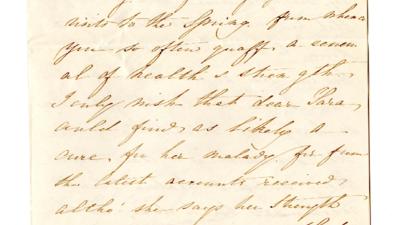 visits to the Spring, from whence
you so often quaff a renew
al of health & strength.
I only wish that dear Sara
could find as likely a
cure for her malady, for from
the latest accounts received,
altho' she says her strength